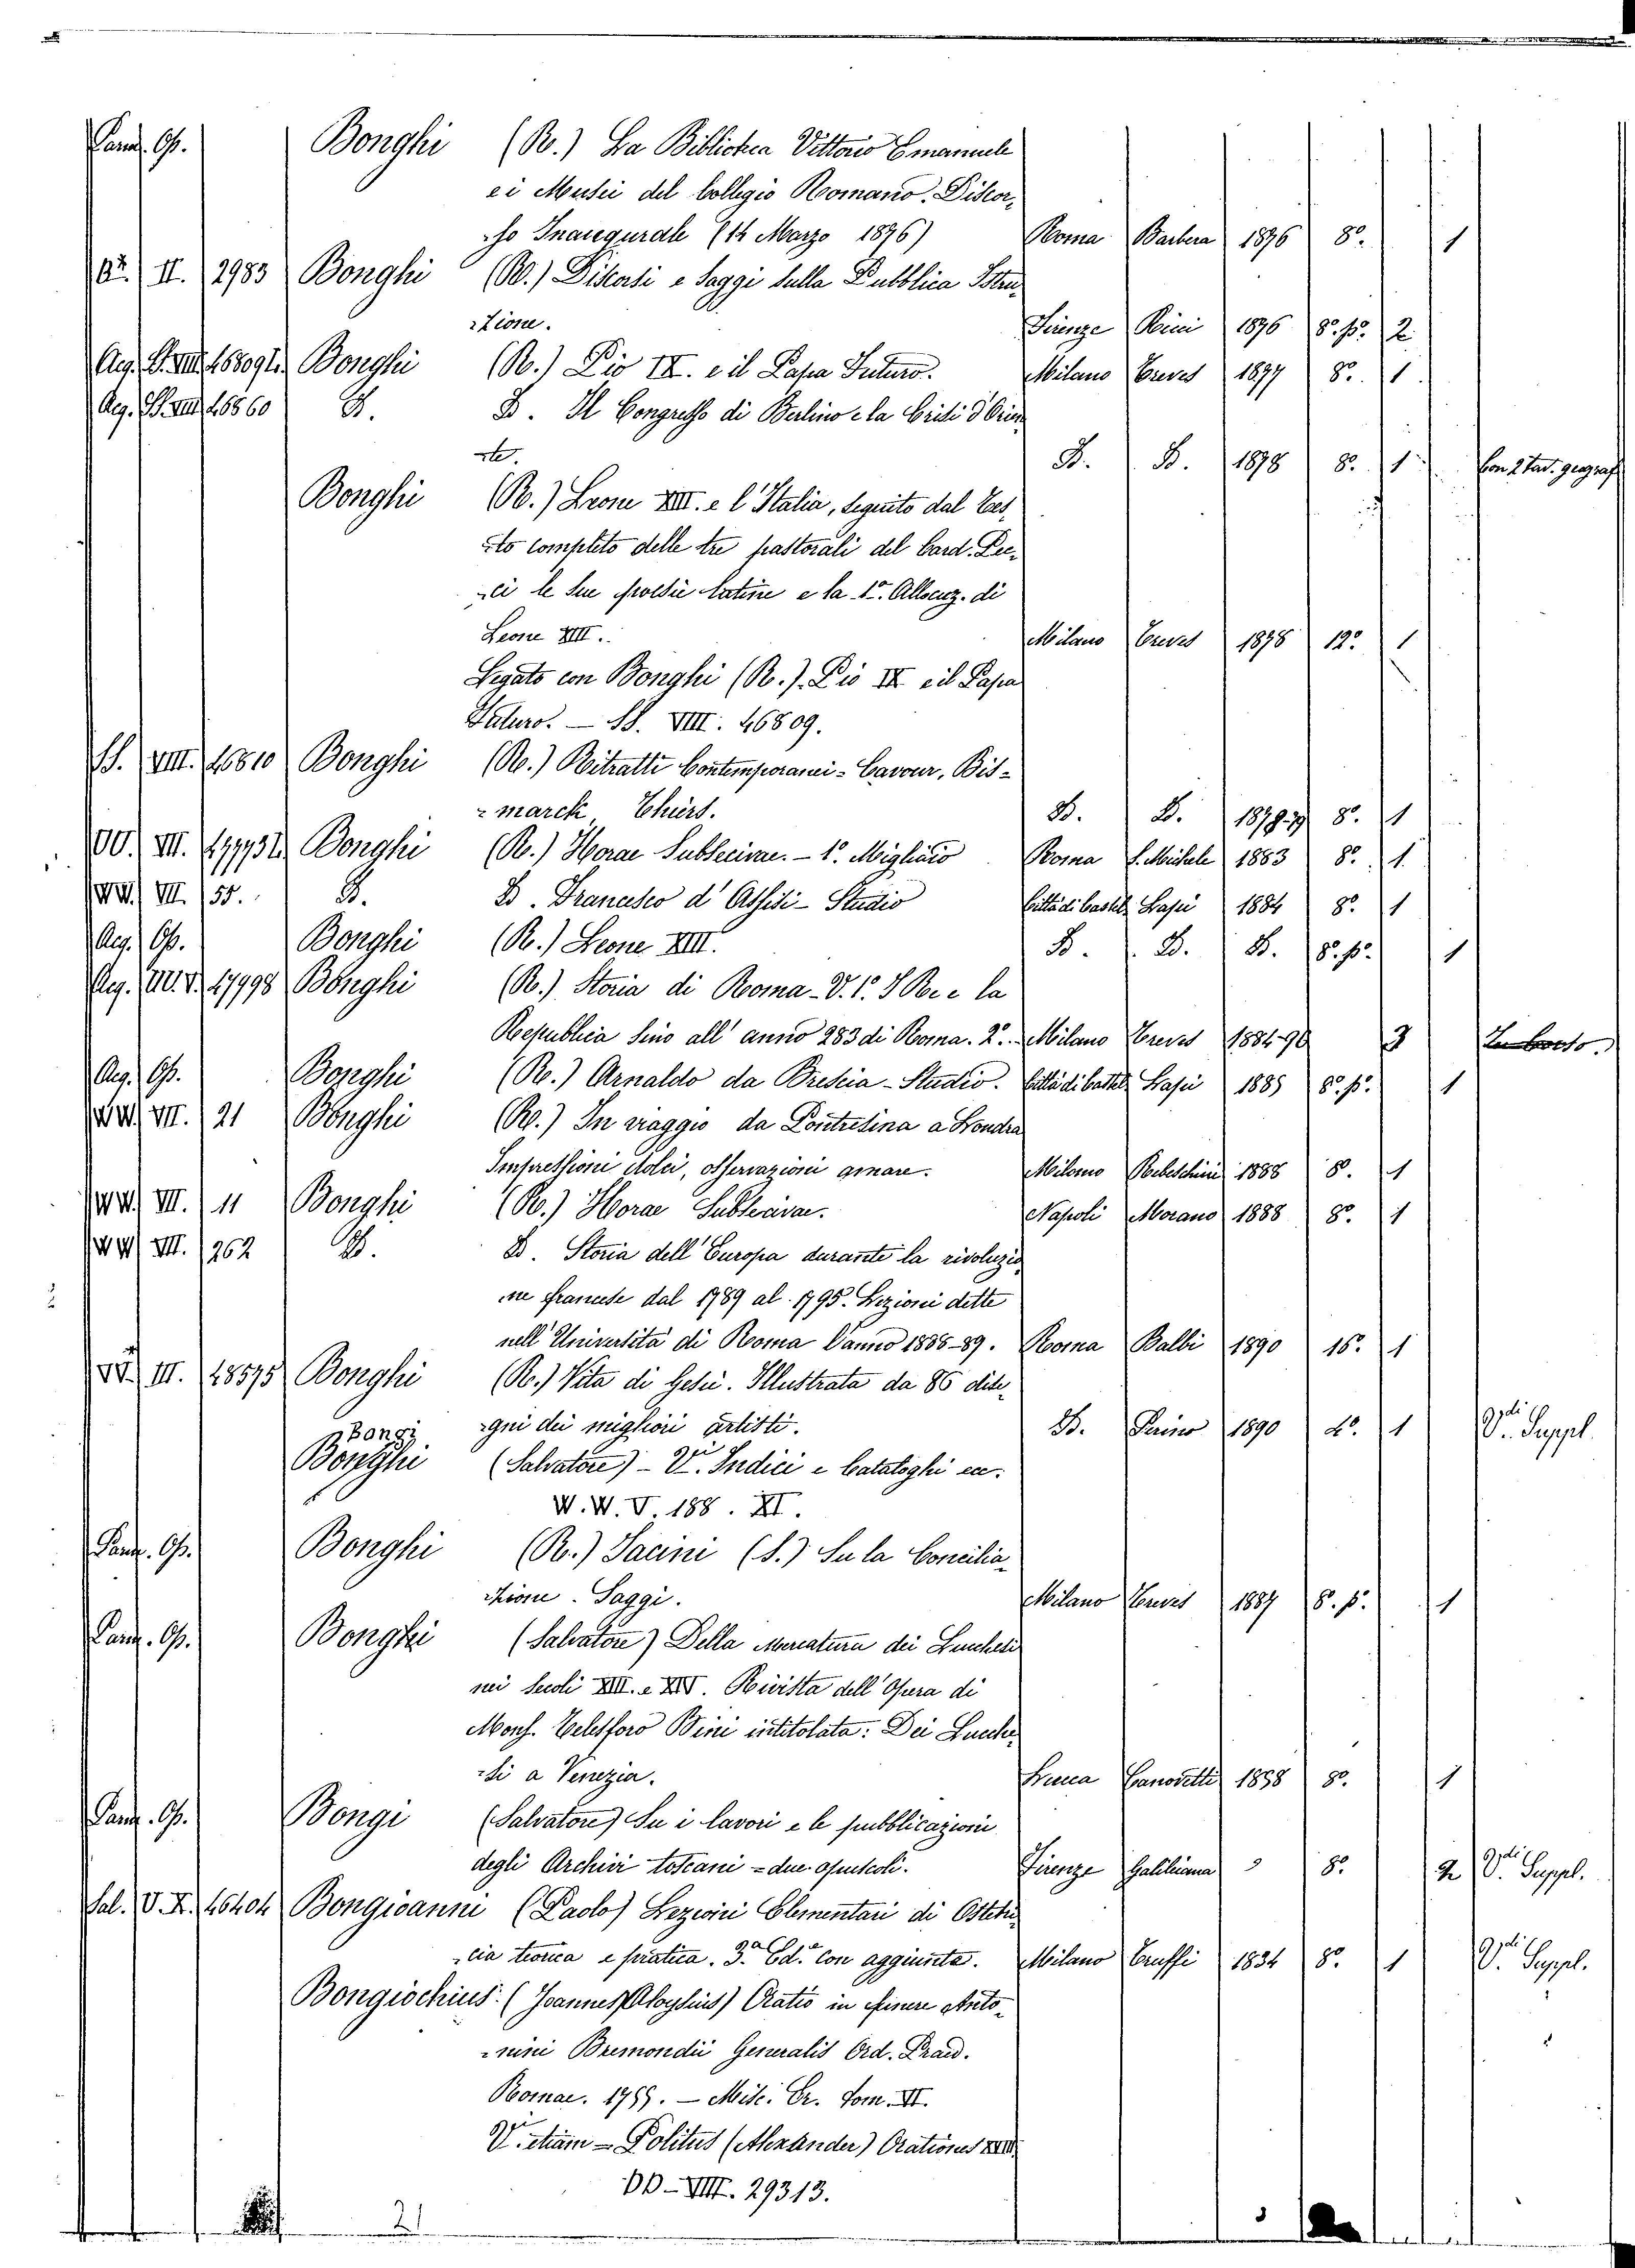 Pam. Op. Bonghi (R.) La Biblioteca Vittorio Emanuele
ei Musei del Collegio Romano. Discor,
-so Inaugurale (14 Marzo 1876) Roma Barbera 1876 8º. 1
II. 2983 Bonghi (R.) Discorsi e Saggi sulla Pubblica Istru,
zione. Firenze 1876 8º. pº. 2
Aeg. SS. VIII. 46809 Bonghi (R.) Pio IX. e il Papa Futuro. Milano Treves 1877 8º. 1
Aeg. SS. VIII 46860 D. D. Il Congresso di Berlino e la Crisi d'Orien
-te. D. D. 1878 8º. 1 Con 2 tav. geograf
Bonghi (R.) Leone XIII. e l'Italia, seguito dal Tes,
-to completo delle tre pastorali del Card. Pec,
-ci le sue poesie latine e la 1ª. Allocuz. di
Leone XIII. Milano Treves 1878 12º 1
Legato con Bonghi (R.). Pio IX e il Papa
Futuro. — SS. VIII. 46809.
SS. VIII. 46810 Bonghi (R.) Ritratti Contemporanei - Cavour, Bis-
-marck, Thiers. D. D. 1878-79 8º. 1
VII. Bonghi (R.) Horae Subsecivae. - 1º. Migliaio Roma S. Michele 1883 8º. 1.
WW. VII. 55. D. D. Francesco d'Assisi - Studio Città di Castello Lapi 1884 8º. 1
Aeg. Op. Bonghi (R.) Leone XIII. D. D. D. 8º. pº. 1
Aeg. 47998 Bonghi (R.) Storia di Roma - V. 1º. I Re e la
Republica sino all'anno 283 di Roma. 2º. Milano Treves 1884-90 3
Aeg. Op. Bonghi (R.) Arnaldo da Brescia - Studio. Città di Castel. Lapi 1885 8º. pº. 1
WW. VII. 21 Bonghi (R.) In viaggio da Pontresina a Londra
Impressioni dolci, osservazioni amare. Milano Rebeschini 1888 8º. 1
WW. VII. 11 Bonghi (R.) Horae Subsecivae. Napoli Morano 1888 8º. 1
WW. VII. 262 D. D. Storia dell'Europa durante la rivoluzio,
-ne francese dal 1789 al 1795. Lezioni dette
nell'Università di Roma l'anno 1888-89. Roma Balbi 1890 16º. 1
VV. III. 48575 Bonghi (R.) Vita di Gesù. Illustrata da 86 dise,
-gni dei migliori artisti. D. Perino 1890 4º. 1 Vedi Suppl.
Bongi
Bonghi (Salvatore) - Vi. Indici e Cataloghi ec.
W. W. V. 188. XI.
Pam. Op. Bonghi (R.) Jacini (S.) Su la Concilia,
-zione. Saggi. Milano Treves 1887 8º. pº. 1
Pam. Op. Bonghi (Salvatore) Della Mercatura dei Lucchesi
nei Secoli XIII. e XIV. Rivista dell'Opera di
Mons. Telesforo Bini intitolata: Dei Lucche,
-si a Venezia. Lucca Canovetti 1858 8º. 1
Pam. Op. Bongi (Salvatore) Su i lavori e le pubblicazioni
degli Archivi toscani = due opuscoli. Firenze Galileiana 8º. 2 Vedi Suppl.
Sal. V. X. 46404 Bongioanni (Paolo) Lezioni Elementari di Ostetri,
-cia teorica e pratica. 3ª Ed.e con aggiunte. Milano Truffi 1834 8º. 1 Vedi Suppl.
Bongiochius: (Joannes Aloysius) Oratio in funere Anto,
-nini Bremondii Generalis Ord. Praed.
Romae. 1755. — Misc. Er. Tom. VI.
V. etiam = Politus (Alexander) Orationes XVIII.
DD - VIII. 29313.
21